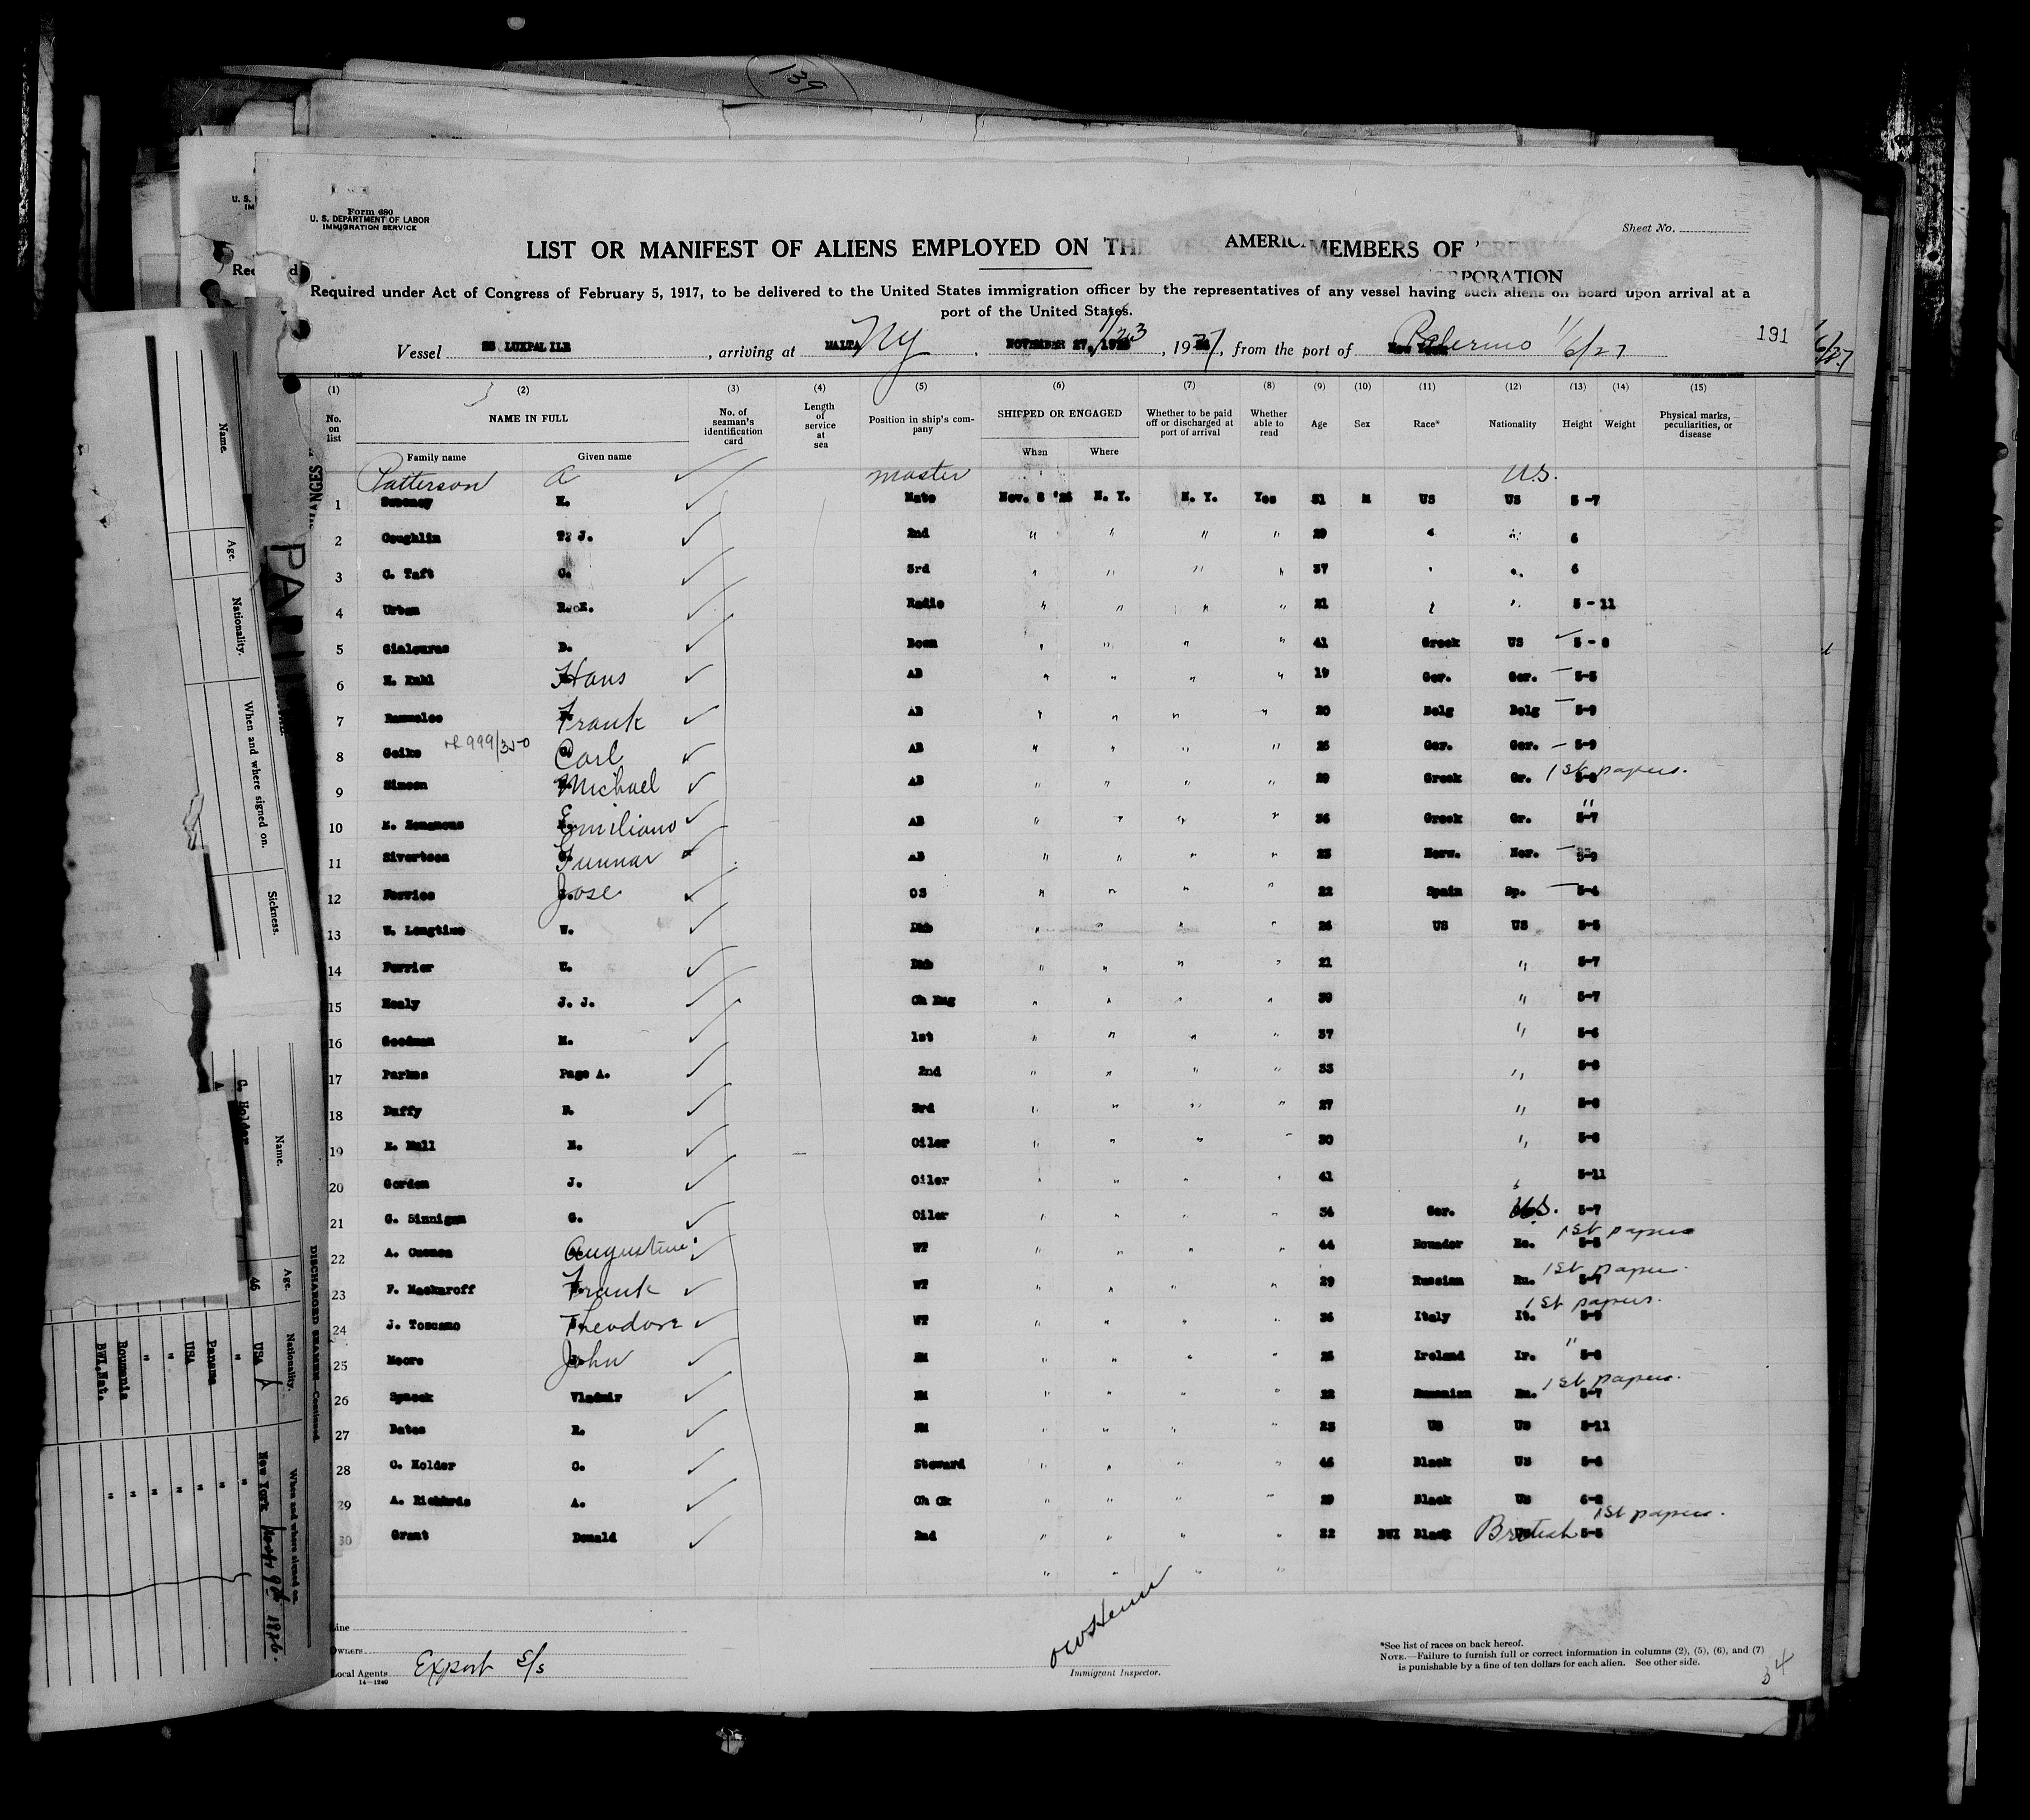 139
Form 680
U. S. DEPARTMENT OF LABOR
IMMIGRATION SERVICE
Sheet No.
LIST OR MANIFEST OF ALIENS EMPLOYED ON THE VESSEL AMERIC. MEMBERS OF CREW
RPORATION
Required under Act of Congress of February 5, 1917, to be delivered to the United States immigration officer by the representatives of any vessel having such aliens on board upon arrival at a
port of the United States.
Vessel SS LUXPALILE, arriving at MALTA NY, NOVEMBER 27, 1926 1/23, 1927, from the port of Palermo 1/6/27 191
(1) (2) (3) (4) (5) (6) (7) (8) (9) (10) (11) (12) (13) (14) (15)
No. on list NAME IN FULL No. of seaman's identification card Length of service at sea Position in ship's company SHIPPED OR ENGAGED Whether to be paid off or discharged at port of arrival Whether able to read Age Sex Race* Nationality Height Weight Physical marks, peculiarities, or disease
Family name Given name When Where
Patterson A master U.S.
1 Sweeney H. Mate Nov. 8 '26 N. Y. N. Y. Yes 31 M US US 5-7
2 Coughlin T. J. 2nd " " " " 29 " " 6
3 C. Taft C. 3rd " " " " 37 " " 6
4 Urban R. E. Radio " " " " 21 " " 5-11
5 Gialouras D. Bosn " " " " 41 Greek US 5-8
6 H. Kahl Hans AB " " " " 19 Ger. Ger. 5-5
7 Frank AB " " " " 20 Belg Belg 5-9
8 Geike Carl AB " " " " 25 Ger. Ger. 5-9
9 Simeon Michael AB " " " " 29 Greek Gr. 1st papers. 5-8
10 Emiliano AB " " " " 36 Greek Gr. " 5-7
11 Sivertsen Gunnar AB " " " " 23 Norw. Nor. 5-9
12 Ferries Jose OS " " " " 22 Spain Sp. 5-4
13 W. Longtime W. " " " " 26 US US 5-5
14 Ferrier " " " " 21 " 5-7
15 Healy J. J. Ch Eng " " " " 39 " 5-7
16 Goodman M. 1st " " " " 37 " 5-6
17 Parkes Page A. 2nd " " " " 33 " 5-8
18 Duffy R. 3rd " " " " 27 " 5-8
19 Oiler " " " " 30 " 5-8
20 Gordon J. Oiler " " " " 41 " 5-11
21 G. Sinnigen G. Oiler " " " " 36 Ger. U.S. 5-7
22 Augustine WT " " " " 44 Ecuador Ec. 1st papers 5-5
23 F. Mackaroff Frank WT " " " " 29 Russian Ru. 1st paper. 5-7
24 J. Toscano Theodore WT " " " " 36 Italy It. 1st papers. 5-9
25 Moore John FM " " " " 26 Ireland Ir. " 5-8
26 Spacek Vladmir FM " " " " 22 Rumanian Ru. 1st papers. 5-7
27 Bates R. FM " " " " 23 US US 5-11
28 C. Holder C. Steward " " " " 46 Black US 5-6
29 A. Richards A. Ch Ck " " " " 29 Black US
30 Grant Donald 2nd " " " " 22 BWI Black British 1st papers. 5-5
Line
Owners
Local Agents Export S/s
14-1240
Immigrant Inspector.
*See list of races on back hereof.
NOTE.—Failure to furnish full or correct information in columns (2), (5), (6), and (7)
is punishable by a fine of ten dollars for each alien. See other side.
34
Name.
Age.
Nationality.
When and where signed on.
Sickness.
DISCHARGED SEAMEN—Continued.
Name. Age. Nationality. When and where signed on.
C. Holder 46 USA New York
" "
Panama "
USA "
" "
" "
Roumania "
BWI.Nat. "